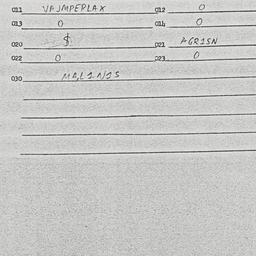 011 VAJMPEPLAX 012 0
013 0 014 0
020 $ 021 AGRISN
022 0 023 0
030 MALINIS